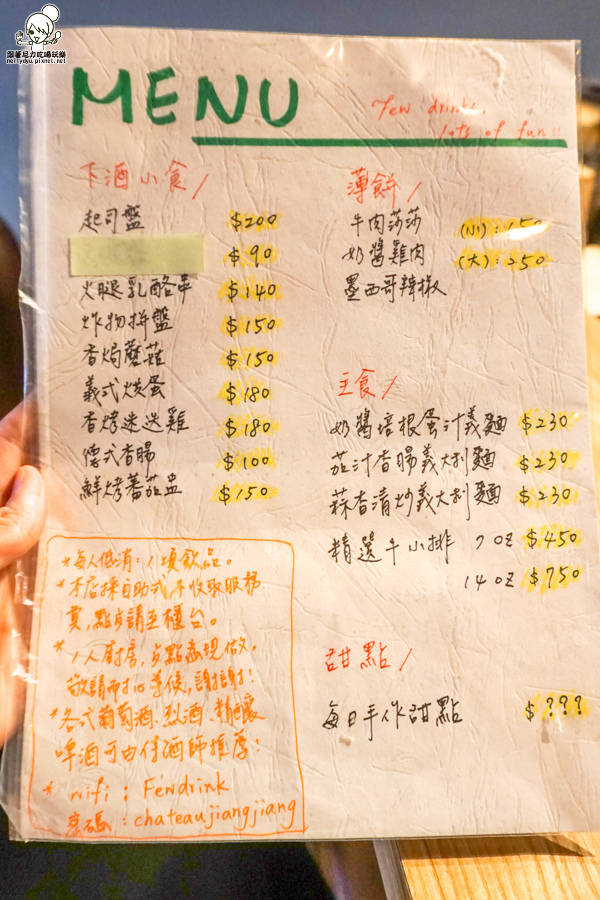 跟著尼力吃喝玩樂
nellydyu.pixnet.net
MENU
Few drinks,
lots of fun!!
下酒小食/
起司盤 $200
$90
火腿乳酪串 $140
炸物拼盤 $150
香焗蘑菇 $150
義式烘蛋 $180
香烤迷迭雞 $180
德式香腸 $100
鮮烤蕃茄盅 $150
薄餅/
牛肉莎莎 (小):150
奶醬雞肉 (大):250
墨西哥辣椒
主食/
奶醬培根蛋汁義麵 $230
茄汁香腸義大利麵 $230
蒜香清炒義大利麵 $230
精選牛小排 7oz $450
14oz $750
甜點/
每日手作甜點 $???
*每人低消:1項飲品。
*本店採自助式不收取服務
費,點步請至櫃台。
*1人廚房,步點為現做,
敬請耐心等候,謝謝!
*各式葡萄酒、烈酒、精釀
啤酒可由侍酒師推薦!
*wifi:Fewdrink
密碼:chateaujiangjiang